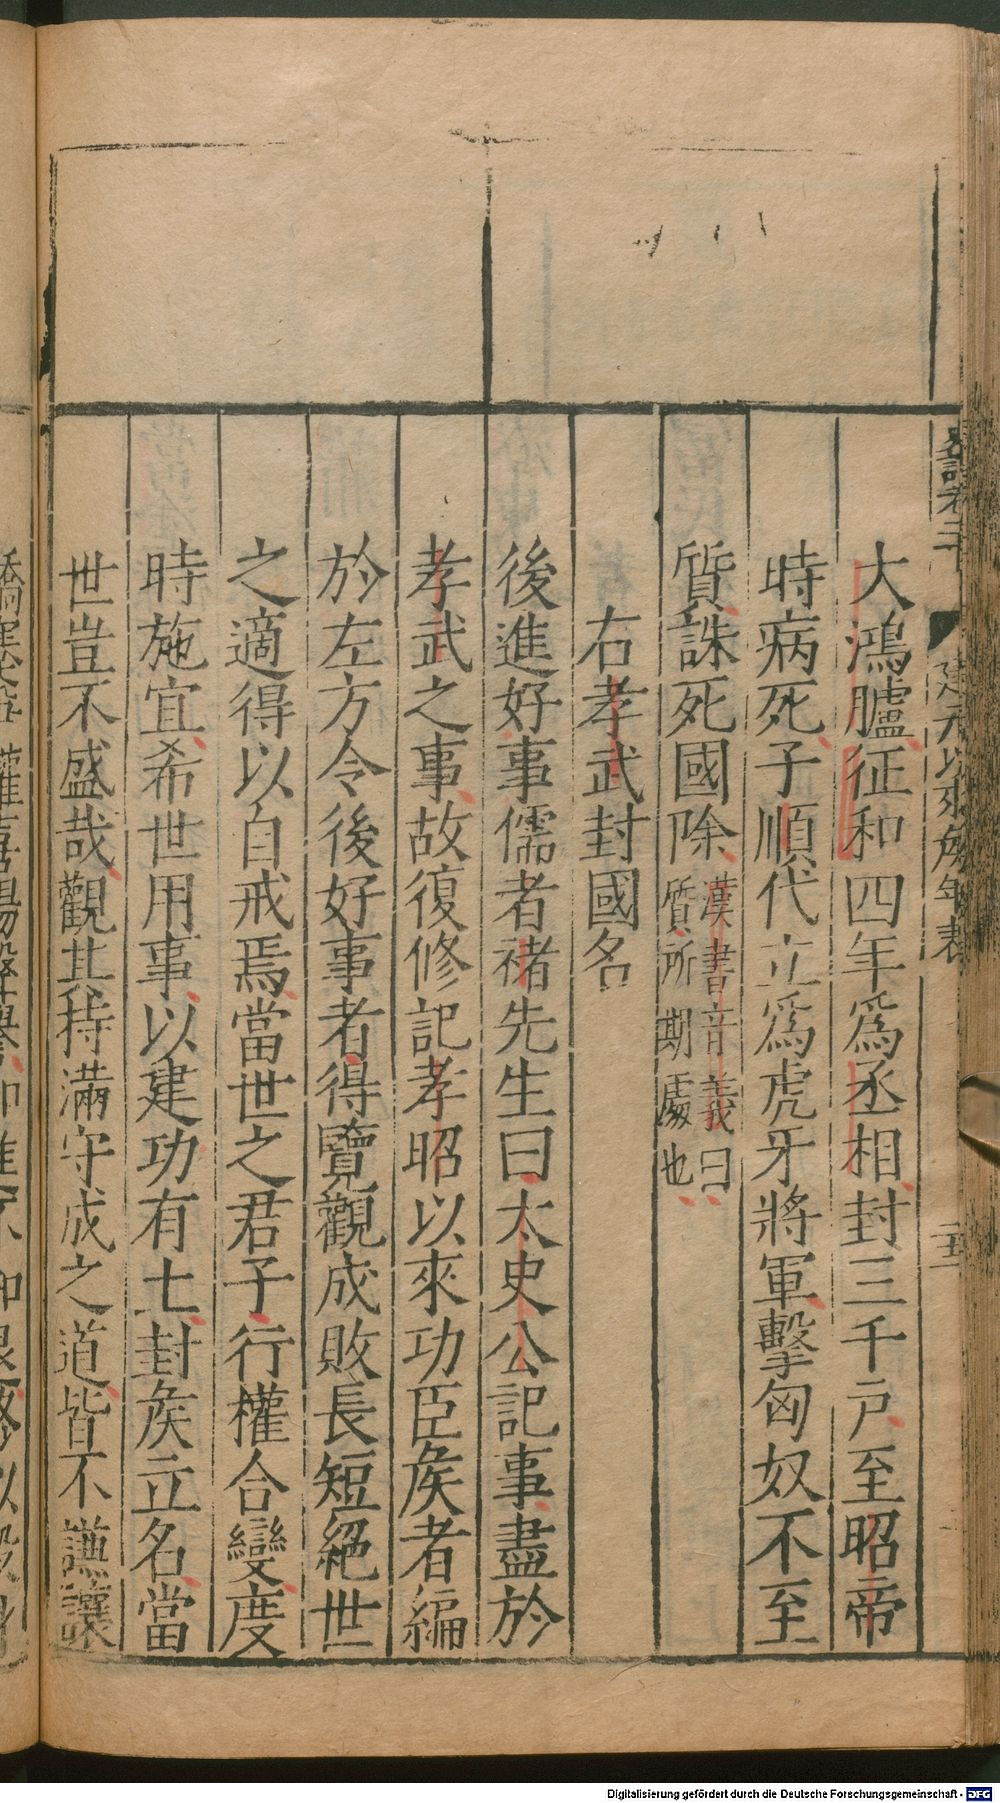 史記卷二十 建元以來侯年表 二十五
大鴻臚征和四年爲丞相封三千戶至昭帝
時病死子順代立爲虎牙將軍擊匈奴不至
質誅死國除漢書音義曰質所期處也
右孝武封國名
後進好事儒者褚先生曰太史公記事盡於
孝武之事故復修記孝昭以來功臣矦者編
於左方令後好事者得覽觀成敗長短絕世
之適得以自戒焉當世之君子行權合變度
時施宜希世用事以建功有土封矦立名當
世豈不盛哉觀其持滿守成之道皆不謙讓
Digitalisierung gefördert durch die Deutsche Forschungsgemeinschaft - DFG